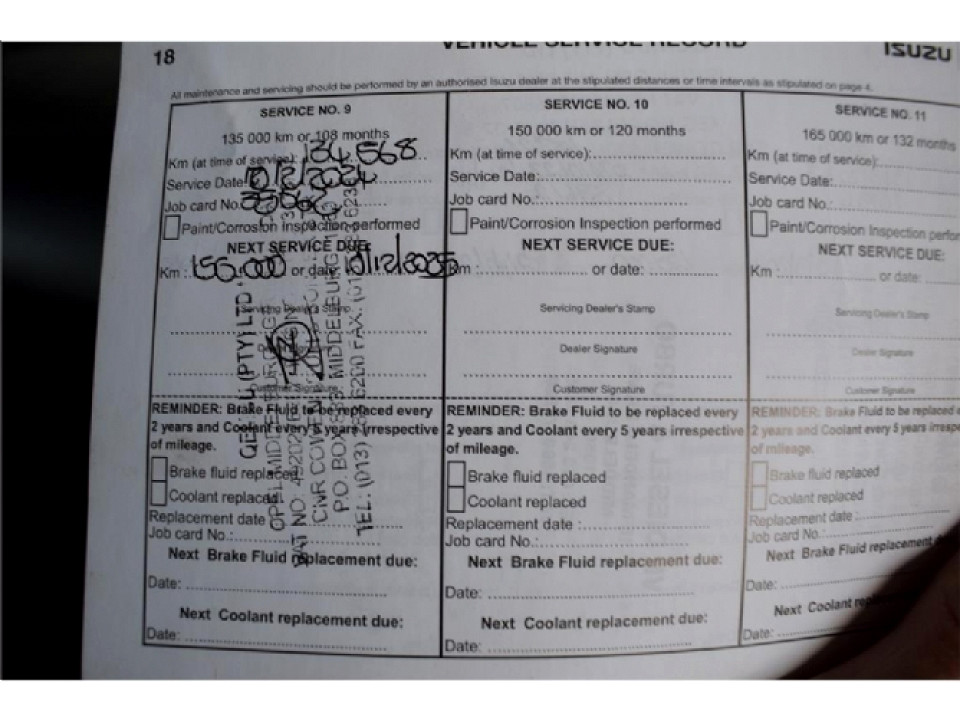 18
VEHICLE SERVICE RECORD
ISUZU
All maintenance and servicing should be performed by an authorised Isuzu dealer at the stipulated distances or time intervals as stipulated on page 4.
SERVICE NO. 9
135 000 km or 108 months
Km (at time of service): 134 568
Service Date:
Job card No.
Paint/Corrosion Inspection performed
NEXT SERVICE DUE:
Km : 150.000 or date:
Servicing Dealer's Stamp
Dealer Signature
Customer Signature
REMINDER: Brake Fluid to be replaced every
2 years and Coolant every 5 years irrespective
of mileage.
Brake fluid replaced
Coolant replaced
Replacement date
Job card No.:
Next Brake Fluid replacement due:
Date:
Next Coolant replacement due:
Date:
(PTY) LTD
VAT NO:
P.O. BOX MIDDELBURG
TEL: (013) 6200 FAX:
SERVICE NO. 10
150 000 km or 120 months
Km (at time of service):
Service Date:
Job card No.:
Paint/Corrosion Inspection performed
NEXT SERVICE DUE:
Km : or date:
Servicing Dealer's Stamp
Dealer Signature
Customer Signature
REMINDER: Brake Fluid to be replaced every
2 years and Coolant every 5 years irrespective
of mileage.
Brake fluid replaced
Coolant replaced
Replacement date :
Job card No.:
Next Brake Fluid replacement due:
Date:
Next Coolant replacement due:
Date:
SERVICE NO. 11
165 000 km or 132 months
Km (at time of service):
Service Date:
Job card No.:
Paint/Corrosion Inspection perfor
NEXT SERVICE DUE:
Km : or date:
Servicing Dealer's Stamp
Dealer Signature
Customer Signature
REMINDER: Brake Fluid to be replaced e
2 years and Coolant every 5 years irrespe
of mileage.
Brake fluid replaced
Coolant replaced
Replacement date :
Job card No.:
Next Brake Fluid replacement
Date:
Next Coolant rep
Date: